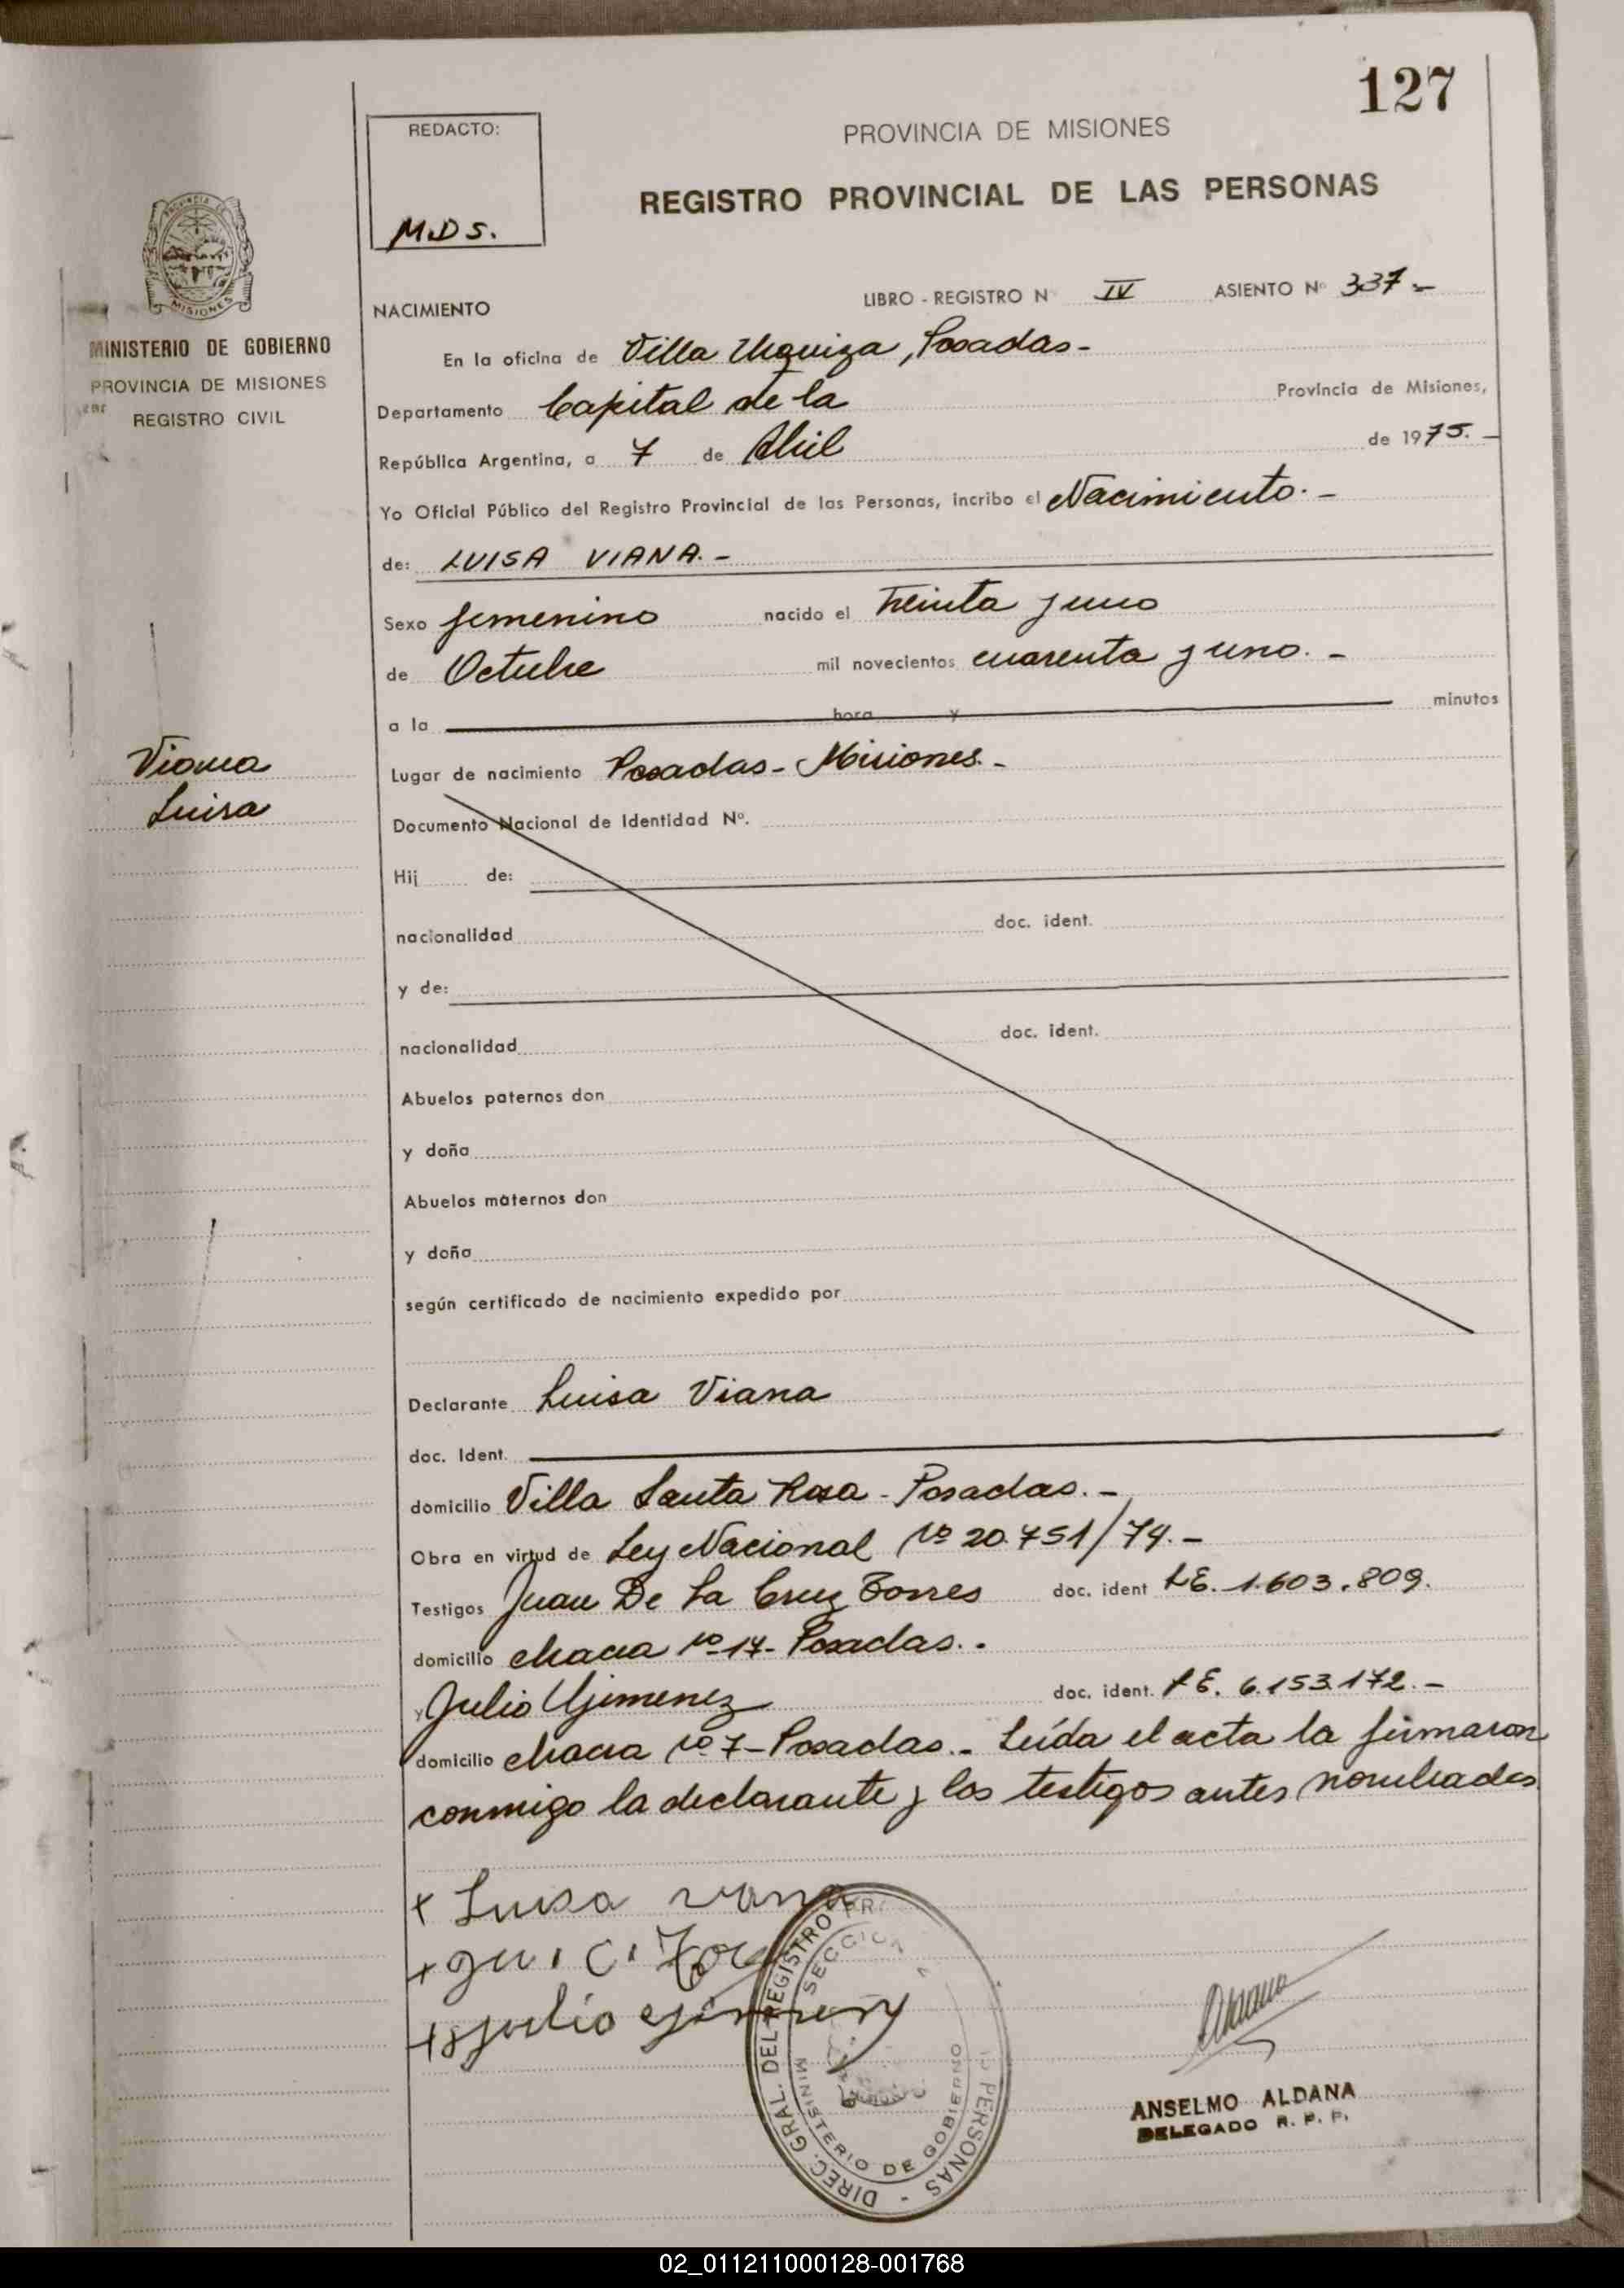 127
REDACTO:
M.D S.
PROVINCIA DE MISIONES
REGISTRO PROVINCIAL DE LAS PERSONAS
PROVINCIA DE
MISIONES
MINISTERIO DE GOBIERNO
PROVINCIA DE MISIONES
REGISTRO CIVIL
NACIMIENTO
LIBRO - REGISTRO N° IV ASIENTO N° 337 -
En la oficina de Villa Urquiza, Posadas -
Departamento Capital de la Provincia de Misiones,
República Argentina, a 7 de Abril de 1975. -
Yo Oficial Público del Registro Provincial de las Personas, incribo el Nacimiento. -
de: LUISA VIANA. -
Sexo femenino nacido el Treinta y uno
de Octubre mil novecientos cuarenta y uno. -
a la hora y minutos
Viana
Luisa
Lugar de nacimiento Posadas - Misiones. -
Documento Nacional de Identidad Nº.
Hij de:
nacionalidad doc. ident.
y de:
nacionalidad doc. ident.
Abuelos paternos don
y doña
Abuelos maternos don
y doña
según certificado de nacimiento expedido por
Declarante Luisa Viana
doc. Ident.
domicilio Villa Santa Rosa - Posadas. -
Obra en virtud de Ley Nacional Nº 20.751/74. -
Testigos Juan De La Cruz Torres doc. ident LE. 1.603.809.
domicilio chacra Nº 17 - Posadas. -
y Julio Gimenez doc. ident. LE. 6.153.172. -
domicilio chacra Nº 7 - Posadas. - Leída el acta la firmaron
conmigo la declarante y los testigos antes nombrados
x Luisa viana
+ Ju. C. Tor
+ julio gimenez
DIREC. GRAL. DEL REGISTRO PR PERSONAS -
SECCION
MINISTERIO DE GOBIERNO
ANSELMO ALDANA
DELEGADO R. P. P.
02_011211000128-001768